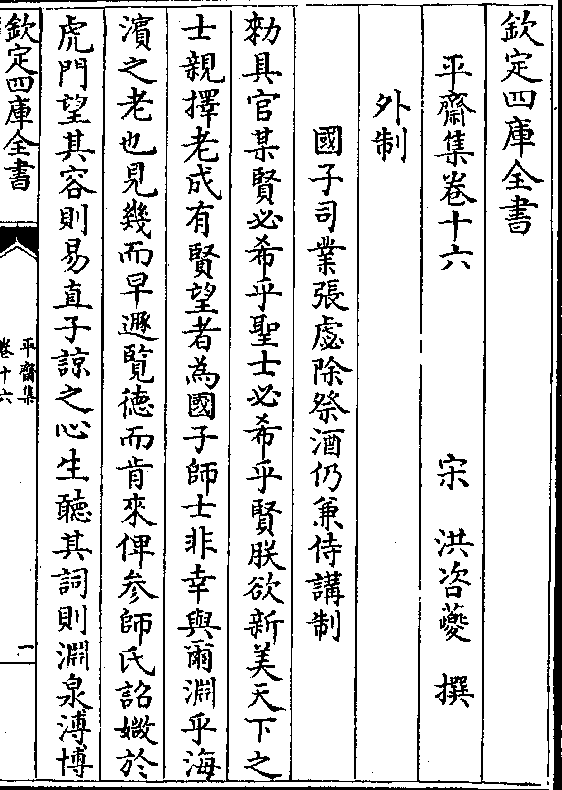 欽定四庫全書
平齋集卷十六
宋 洪咨夔 撰
外制
國子司業張虙除祭酒仍兼侍講制
勑具官某賢必希乎聖士必希乎賢朕欲新美天下之
士親擇老成有賢望者為國子師士非幸與爾淵乎海
濱之老也見幾而早遯覽德而肯來俾參師氏詔媺於
虎門望其容則易直子諒之心生聽其詞則淵泉溥博
欽定四庫全書
平齋集
卷十六
一